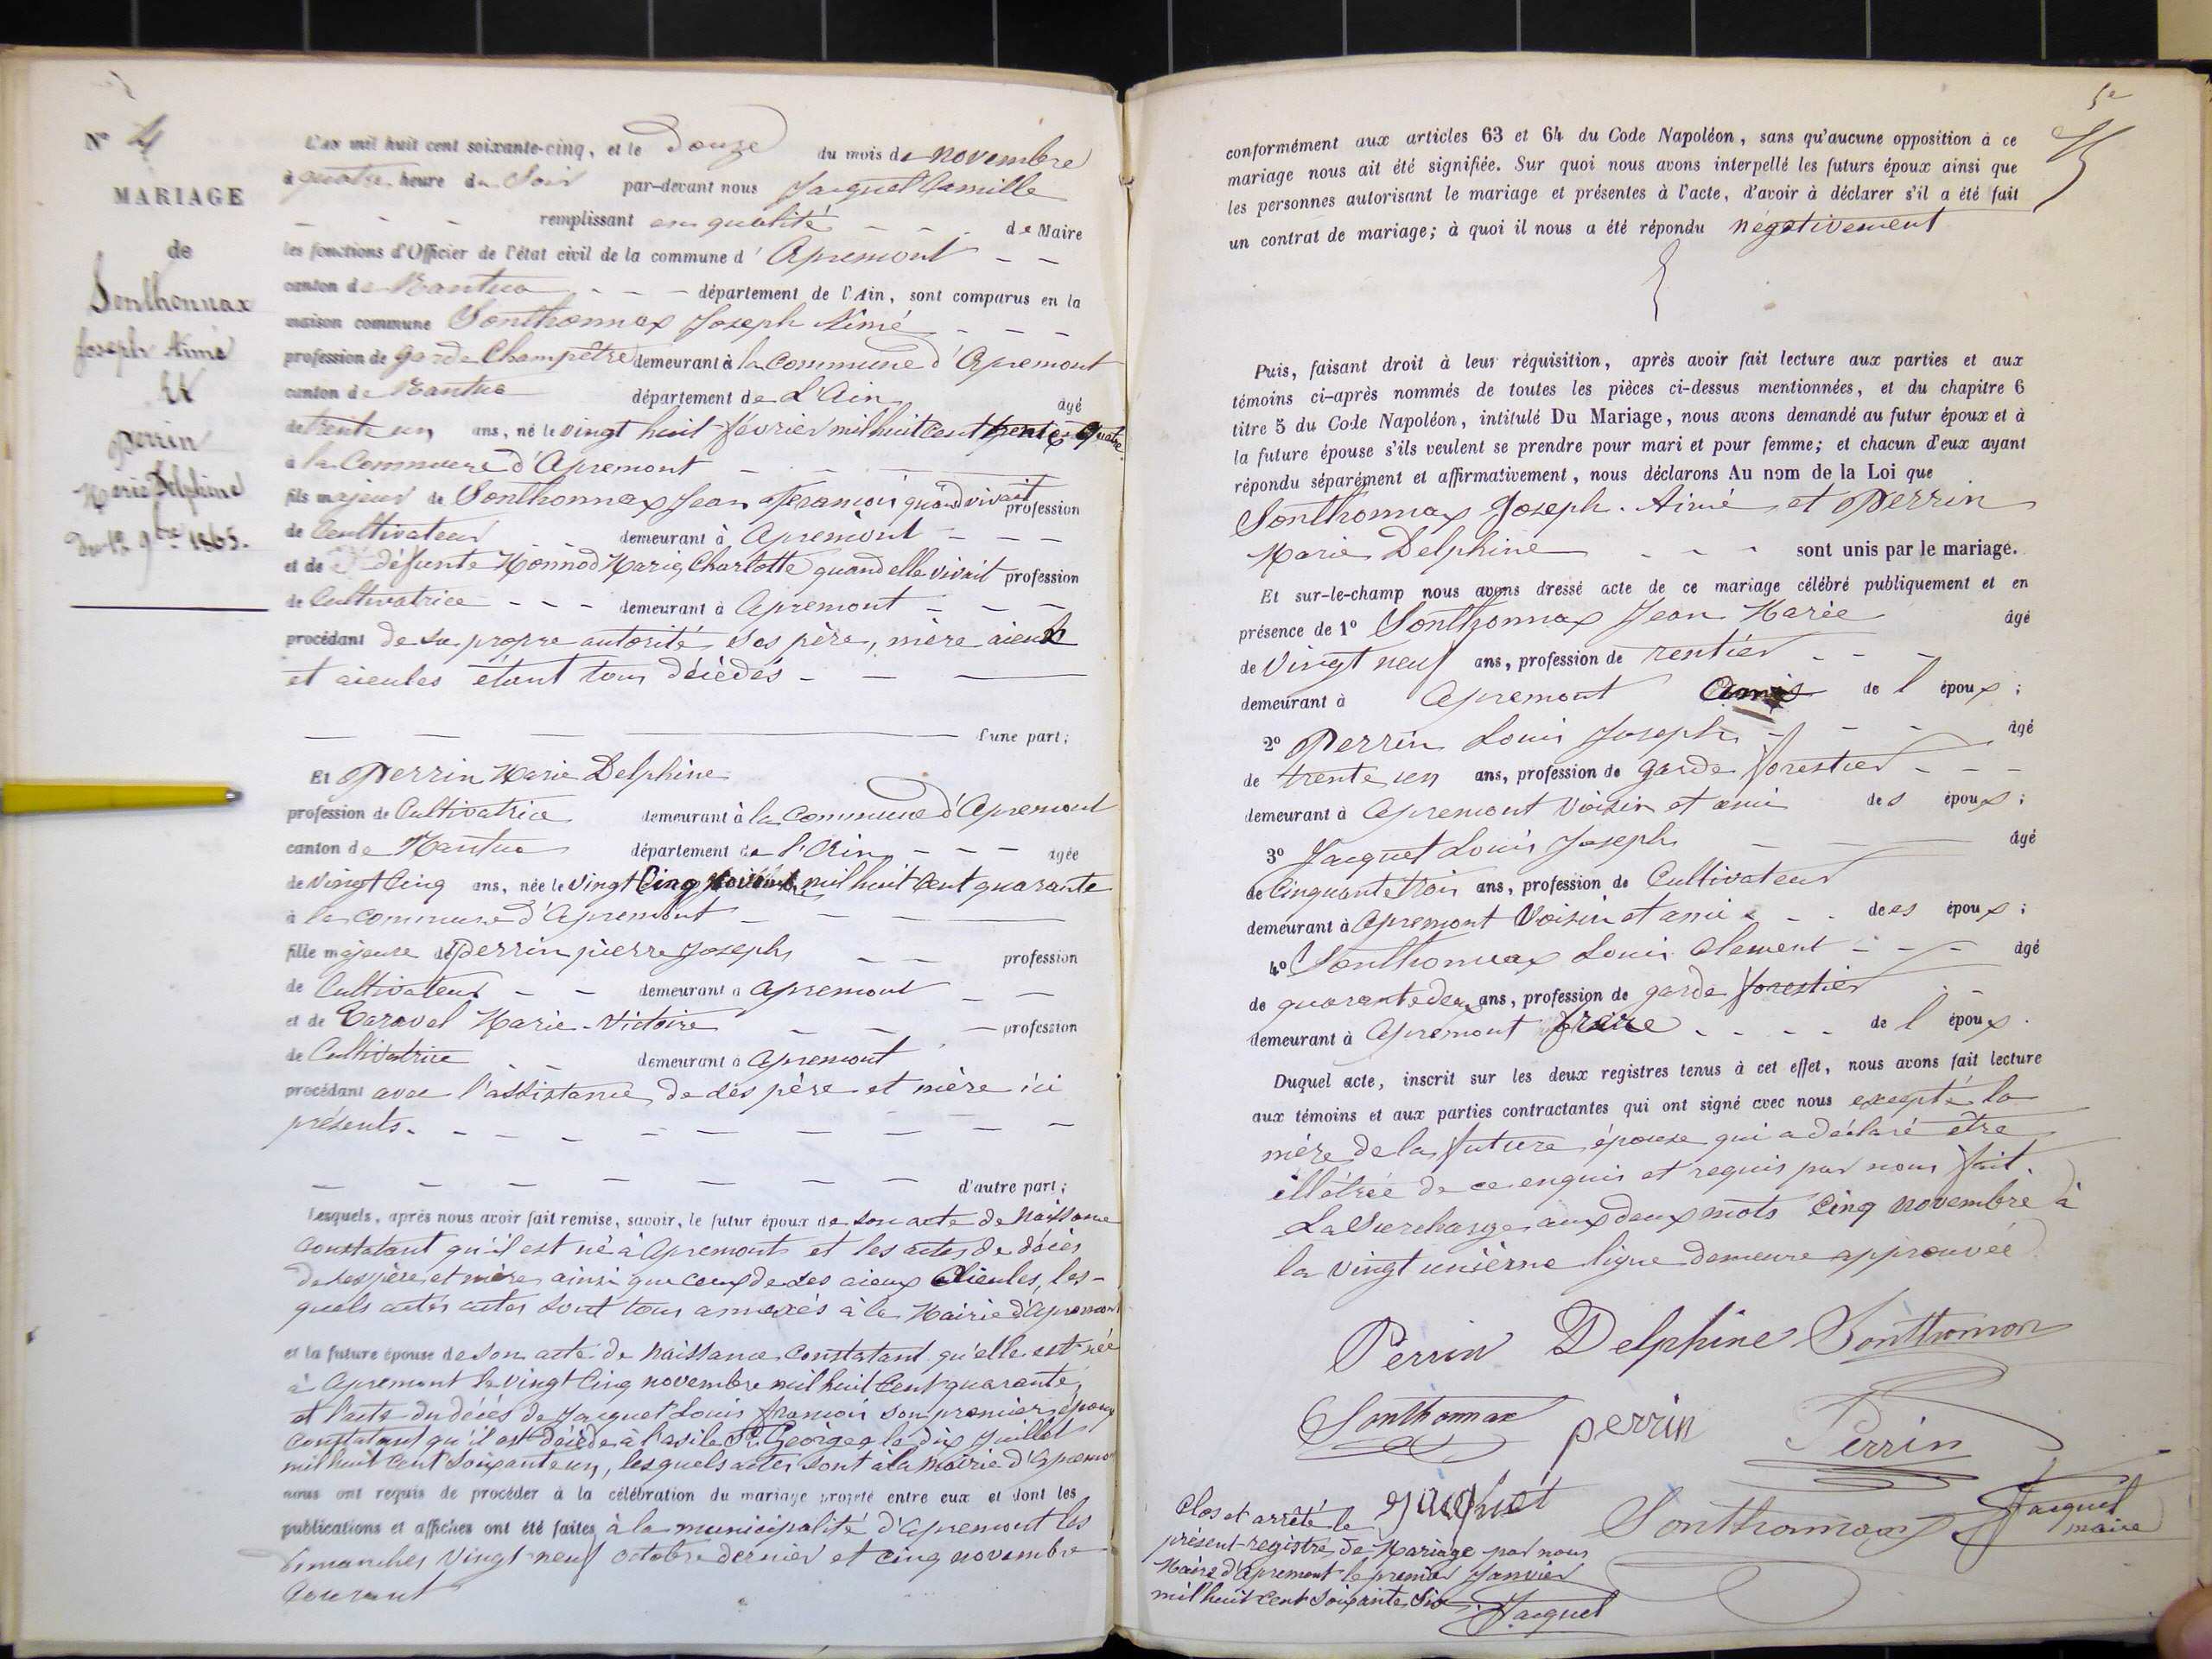 N° 4
MARIAGE
de
Sonthonnax
Joseph Aimé
Et
Perrin
Marie Delphine
Du 12 9bre 1865.
L'an mil huit cent soixante-cinq, et le Douze du mois de novembre
à quatre heure du Soir par-devant nous Jacquet Camille
remplissant en qualité de Maire
les fonctions d'Officier de l'état civil de la commune d'Apremont
canton de Nantua département de l'Ain, sont comparus en la
maison commune Sonthonnax Joseph Aimé
profession de garde Champêtre demeurant à la commune d'Apremont
canton de Nantua département de L'Ain âgé
de trente un ans, né le vingt huit février mil huit cent trente quatre
à la Commune d'Apremont
fils majeur de Sonthonnax Jean François quand vivait profession
de Cultivateur demeurant à Apremont
et de défunte Monnod Marie Charlotte quand elle vivait profession
de Cultivatrice demeurant à Apremont
procédant de sa propre autorité ses père, mère aieux
et aieules étant tous décédés
d'une part;
Et Perrin Marie Delphine
profession de Cultivatrice demeurant à la commune d'Apremont
canton de Nantua département de l'Ain âgée
de vingt Cinq ans, née le vingt Cinq novembre mil huit Cent quarante
à la commune d'Apremont
fille majeure de Perrin pierre Joseph profession
de Cultivateur demeurant à Apremont
et de Caraval Marie-Victoire profession
de Cultivatrice demeurant à Apremont
procédant avec l'assistance de ses père et mère ici
présents.
d'autre part;
Lesquels, après nous avoir fait remise, savoir, le futur époux de son acte de Naissance
Constatant qu'il est né à Apremont et les actes de décès
de ses père et mère ainsi que ceux de ses aieux Aieules, les-
quels actes actes sont tous annexés à la Mairie d'Apremont
et la future épouse de son acte de Naissance Constatant qu'elle est née
à Apremont le vingt Cinq novembre mil huit Cent quarante,
et l'acte du décès de Jacquet Louis françois son premier époux
Constatant qu'il est décédé à l'asile St. Georges le dix Juillet
mil huit Cent Soixante un, lesquels actes sont à la mairie d'Apremo
nous ont requis de procéder à la célébration du mariage projeté entre eux et dont les
publications et affiches ont été faites à la municipalité d'Apremont les
Dimanches vingt-neuf octobre dernier et cinq novembre
Courant
5e
conformément aux articles 63 et 64 du Code Napoléon, sans qu'aucune opposition à ce
mariage nous ait été signifiée. Sur quoi nous avons interpellé les futurs époux ainsi que
les personnes autorisant le mariage et présentes à l'acte, d'avoir à déclarer s'il a été fait
un contrat de mariage; à quoi il nous a été répondu négativement
Puis, faisant droit à leur réquisition, après avoir fait lecture aux parties et aux
témoins ci-après nommés de toutes les pièces ci-dessus mentionnées, et du chapitre 6
titre 5 du Code Napoléon, intitulé Du Mariage, nous avons demandé au futur époux et à
la future épouse s'ils veulent se prendre pour mari et pour femme; et chacun d'eux ayant
répondu séparément et affirmativement, nous déclarons Au nom de la Loi que
Sonthonnax Joseph. Aimé et Perrin
Marie Delphine sont unis par le mariage.
Et sur-le-champ nous avons dressé acte de ce mariage célébré publiquement et en
présence de 1° Sonthonnax Jean Marie âgé
de vingt neuf ans, profession de rentier
demeurant à Apremont Amis de l'époux;
2° Perrin Louis Joseph âgé
de trente un ans, profession de garde forestier
demeurant à Apremont voisin et ami des époux;
3° Jacquet Louis Joseph âgé
de Cinquante trois ans, profession de Cultivateur
demeurant à Apremont Voisin et ami dees époux;
4° Sonthonnax Louis Clement âgé
de quarante deux ans, profession de garde forestier
demeurant à Apremont frère de l'époux.
Duquel acte, inscrit sur les deux registres tenus à cet effet, nous avons fait lecture
aux témoins et aux parties contractantes qui ont signé avec nous excepté la
mère de la future épouse qui a déclaré etre
illétrée de ce enquis et requis par nous fait.
La Surcharge aux deux mots Cinq novembre à
la vingt unième ligne demeure approuvée
Perrin Delphine Sonthonnax
Sonthonnax perrin Perrin
jacquet Sonthonnax Jacquet
maire
Clos et arrêté le
présent registre de Mariage par nous
Maire d'Apremont le premier Janvier
mil huit Cent Soixante Six Jacquet